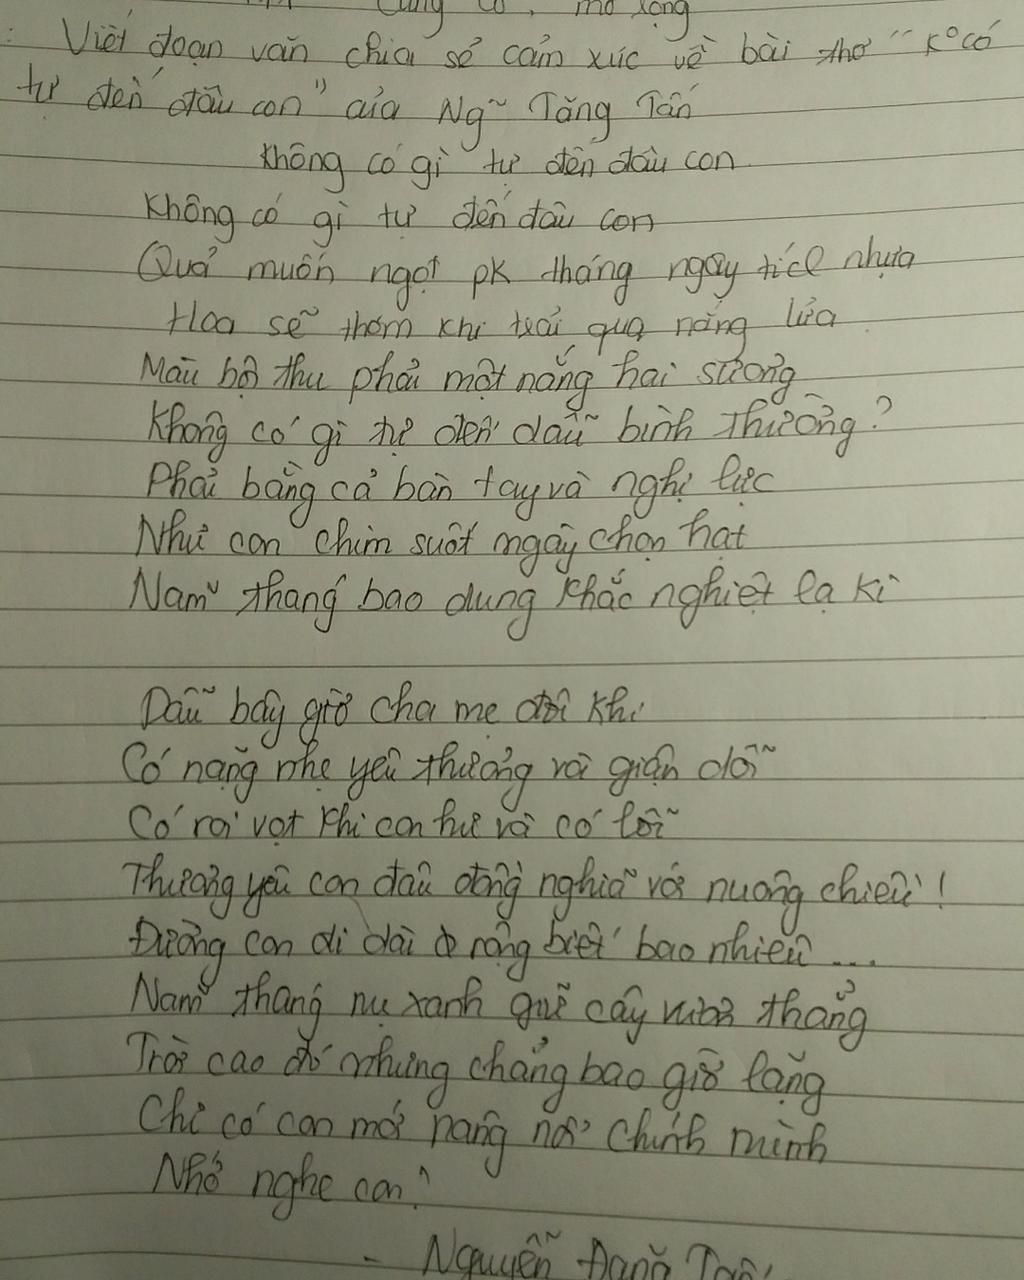 Củng cố, mở rộng
: Viết đoạn văn chia sẻ cảm xúc về bài thơ "K° có
tự đến đâu con" của Ng~ Tăng Tấn
Không có gì tự đến đâu con
Không có gì tự đến đâu con
Quả muốn ngọt pk tháng ngày tích nhựa
Hoa sẽ thơm khi trải qua nắng lửa
Màu bộ thu phải một nắng hai sương
Không có gì tự đến dẫu bình thường?
Phải bằng cả bàn tay và nghị lực
Như con chim suốt ngày chọn hạt
Năm tháng bao dung khắc nghiệt lạ kì
Dẫu bây giờ cha mẹ đôi khi
Có nặng nhẹ yêu thương và giận dỗi
Có roi vọt khi con hư và có lỗi
Thương yêu con đâu đồng nghĩa với nuông chiều!
Đường con đi dài rộng biết bao nhiêu ...
Năm tháng nụ xanh giữ cây vươn thẳng
Trời cao đó nhưng chẳng bao giờ lặng
Chỉ có con mới nâng nổi chính mình
Nhớ nghe con!
- Nguyễn Đăng Tấn